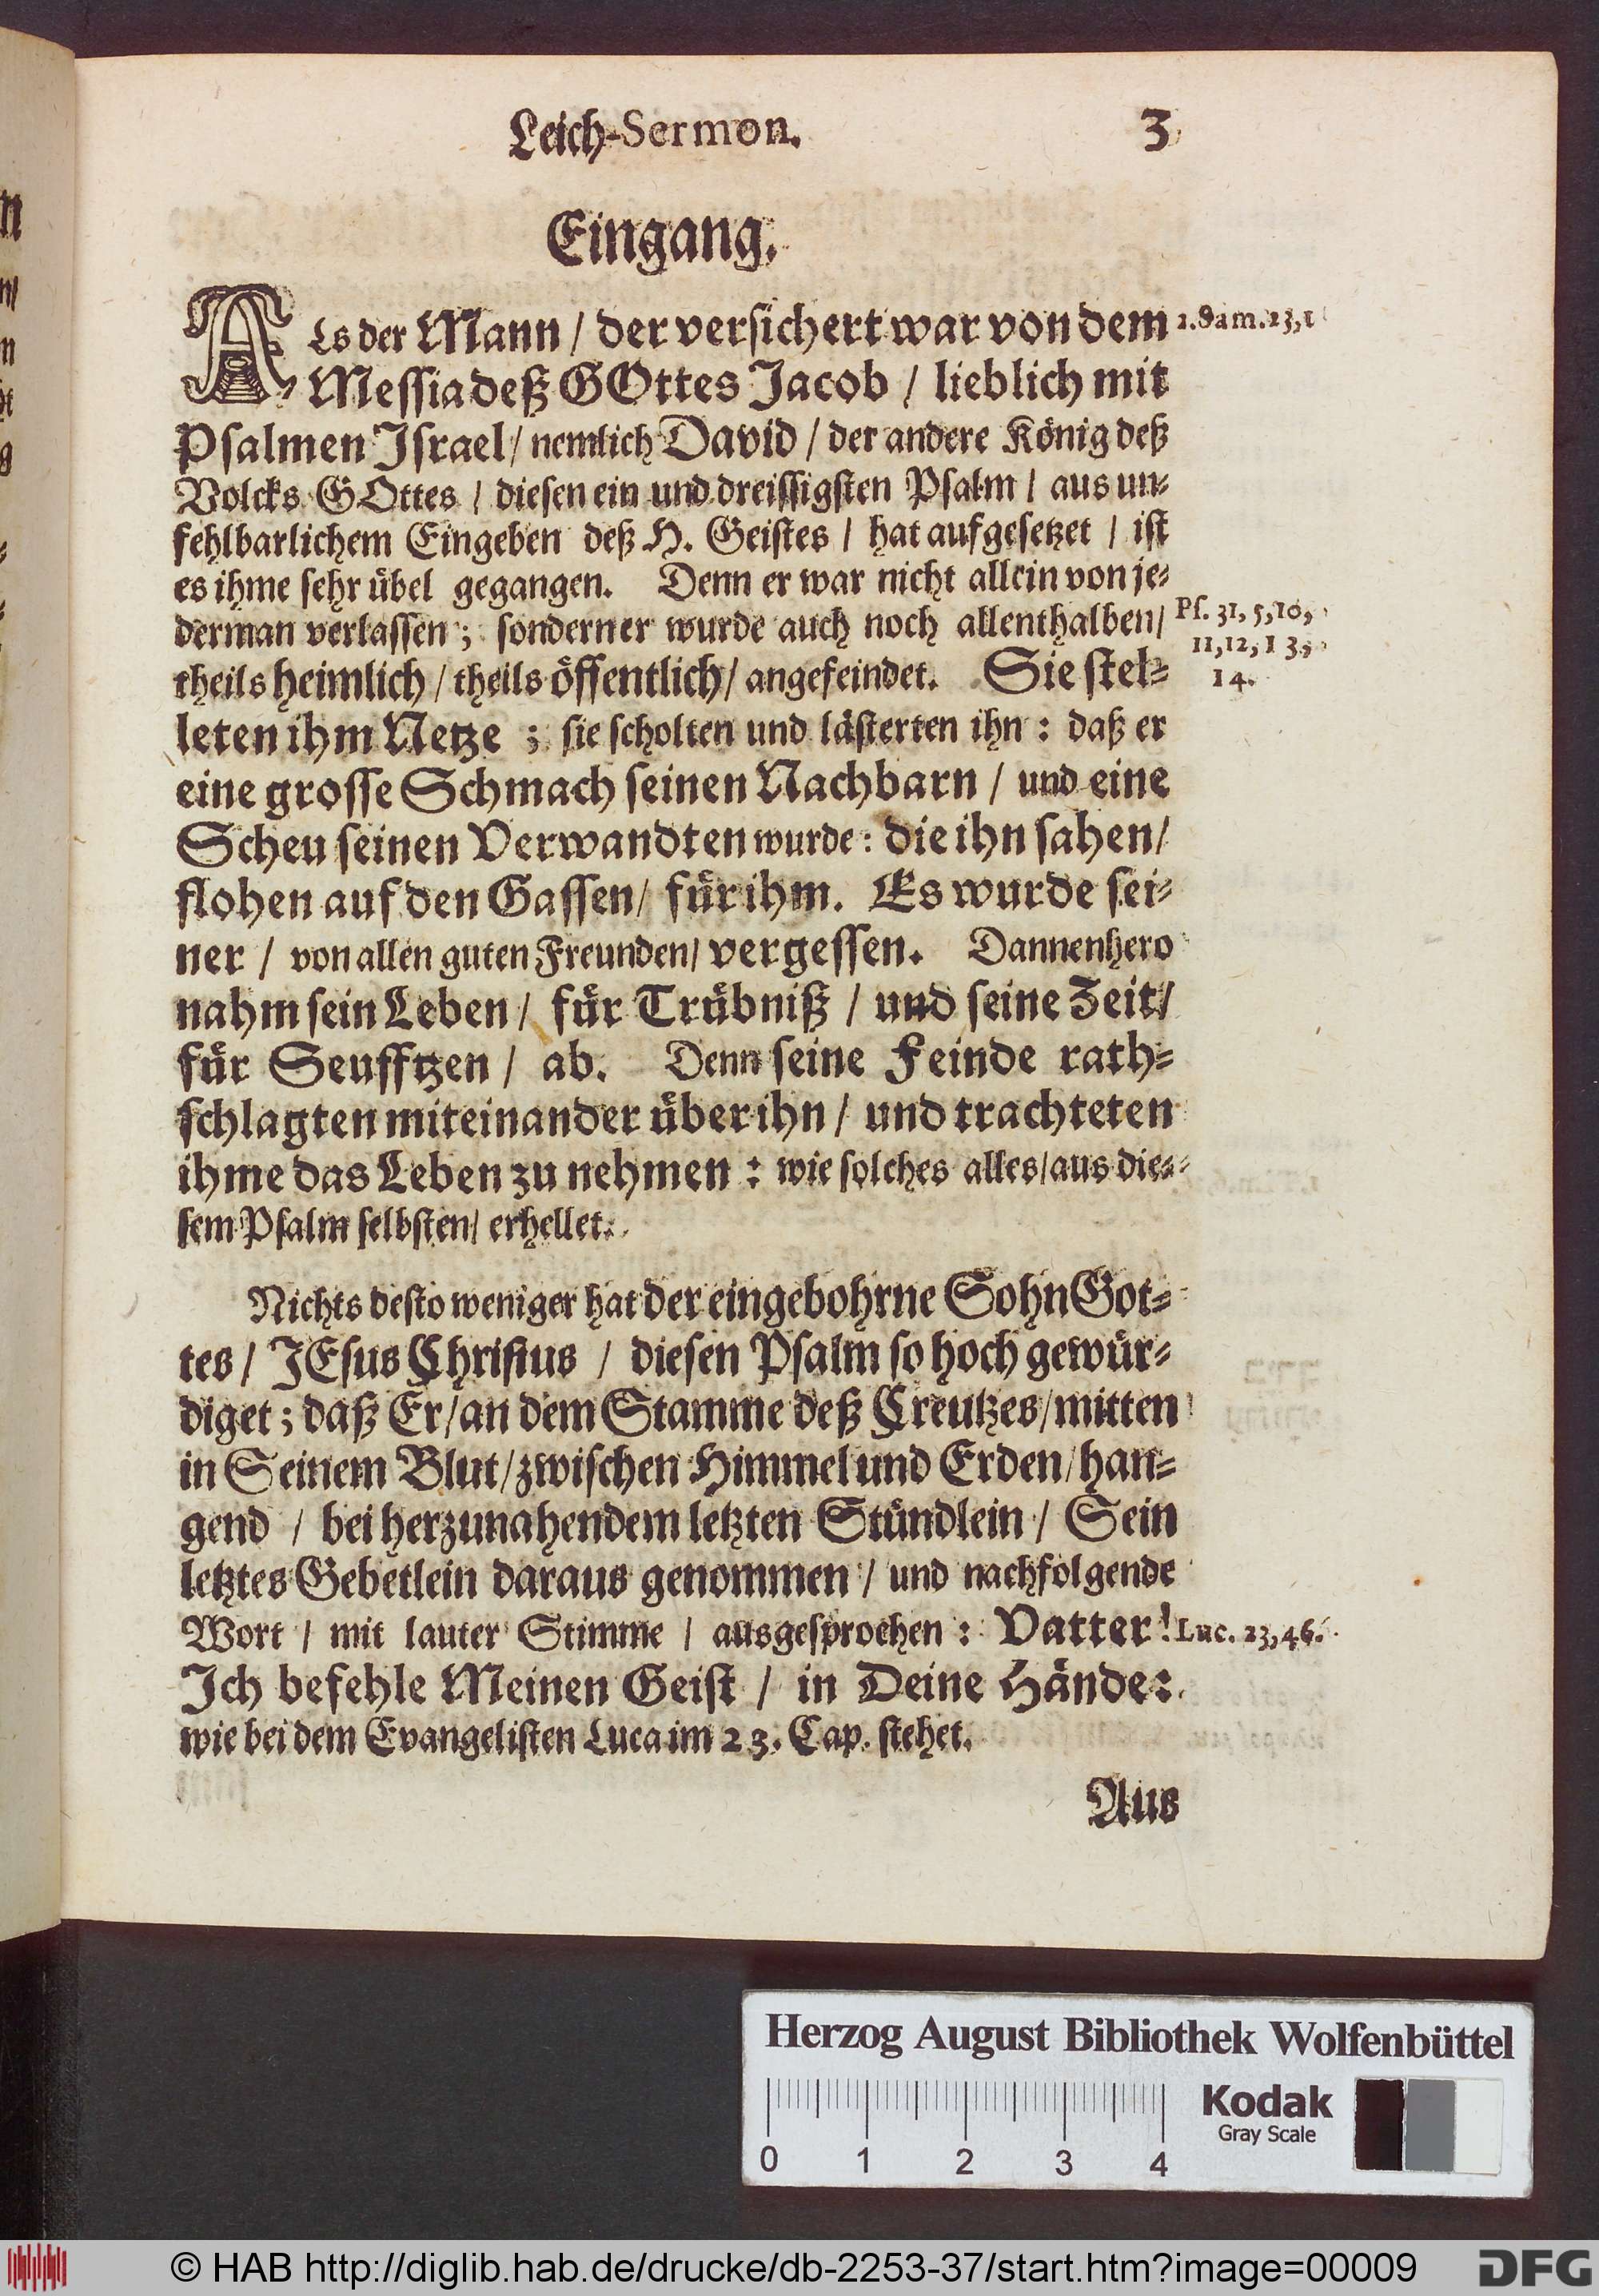 Leich-Sermon. 3
Eingang.
ALs der Mann / der versichert war von dem
2. Sam. 23, 1
Messia deß GOttes Jacob / lieblich mit
Psalmen Israel / nemlich David / der andere König deß
Volcks GOttes / diesen ein und dreissigsten Psalm / aus un-
fehlbarlichem Eingeben deß H. Geistes / hat aufgesetzet / ist
es ihme sehr übel gegangen. Denn er war nicht allein von je-
derman verlassen; sonderner wurde auch noch allenthalben /
Ps. 31, 5, 10,
11, 12, 13,
14.
theils heimlich / theils öffentlich / angefeindet. Sie stel-
leten ihm Netze; sie scholten und lästerten ihn: daß er
eine grosse Schmach seinen Nachbarn / und eine
Scheu seinen Verwandten wurde: die ihn sahen /
flohen auf den Gassen / für ihm. Es wurde sei-
ner / von allen guten Freunden / vergessen. Dannenhero
nahm sein Leben / für Trübniß / und seine Zeit /
für Seufftzen / ab. Denn seine Feinde rath-
schlagten miteinander über ihn / und trachteten
ihme das Leben zu nehmen: wie solches alles / aus die-
sem Psalm selbsten / erhellet.
Nichts desto weniger hat der eingebohrne Sohn Got-
tes / JEsus Christus / diesen Psalm so hoch gewür-
diget; daß Er / an dem Stamme deß Creutzes / mitten
in Seinem Blut / zwischen Himmel und Erden / han-
gend / bei herzunahendem letzten Stündlein / Sein
letztes Gebetlein daraus genommen / und nachfolgende
Wort / mit lauter Stimme / ausgesprochen: Vatter!
Luc. 23, 46.
Ich befehle Meinen Geist / in Deine Hände:
wie bei dem Evangelisten Luca im 23. Cap. stehet.
Aus
Herzog August Bibliothek Wolfenbüttel
Kodak
Gray Scale
0 1 2 3 4
© HAB http://diglib.hab.de/drucke/db-2253-37/start.htm?image=00009
DFG